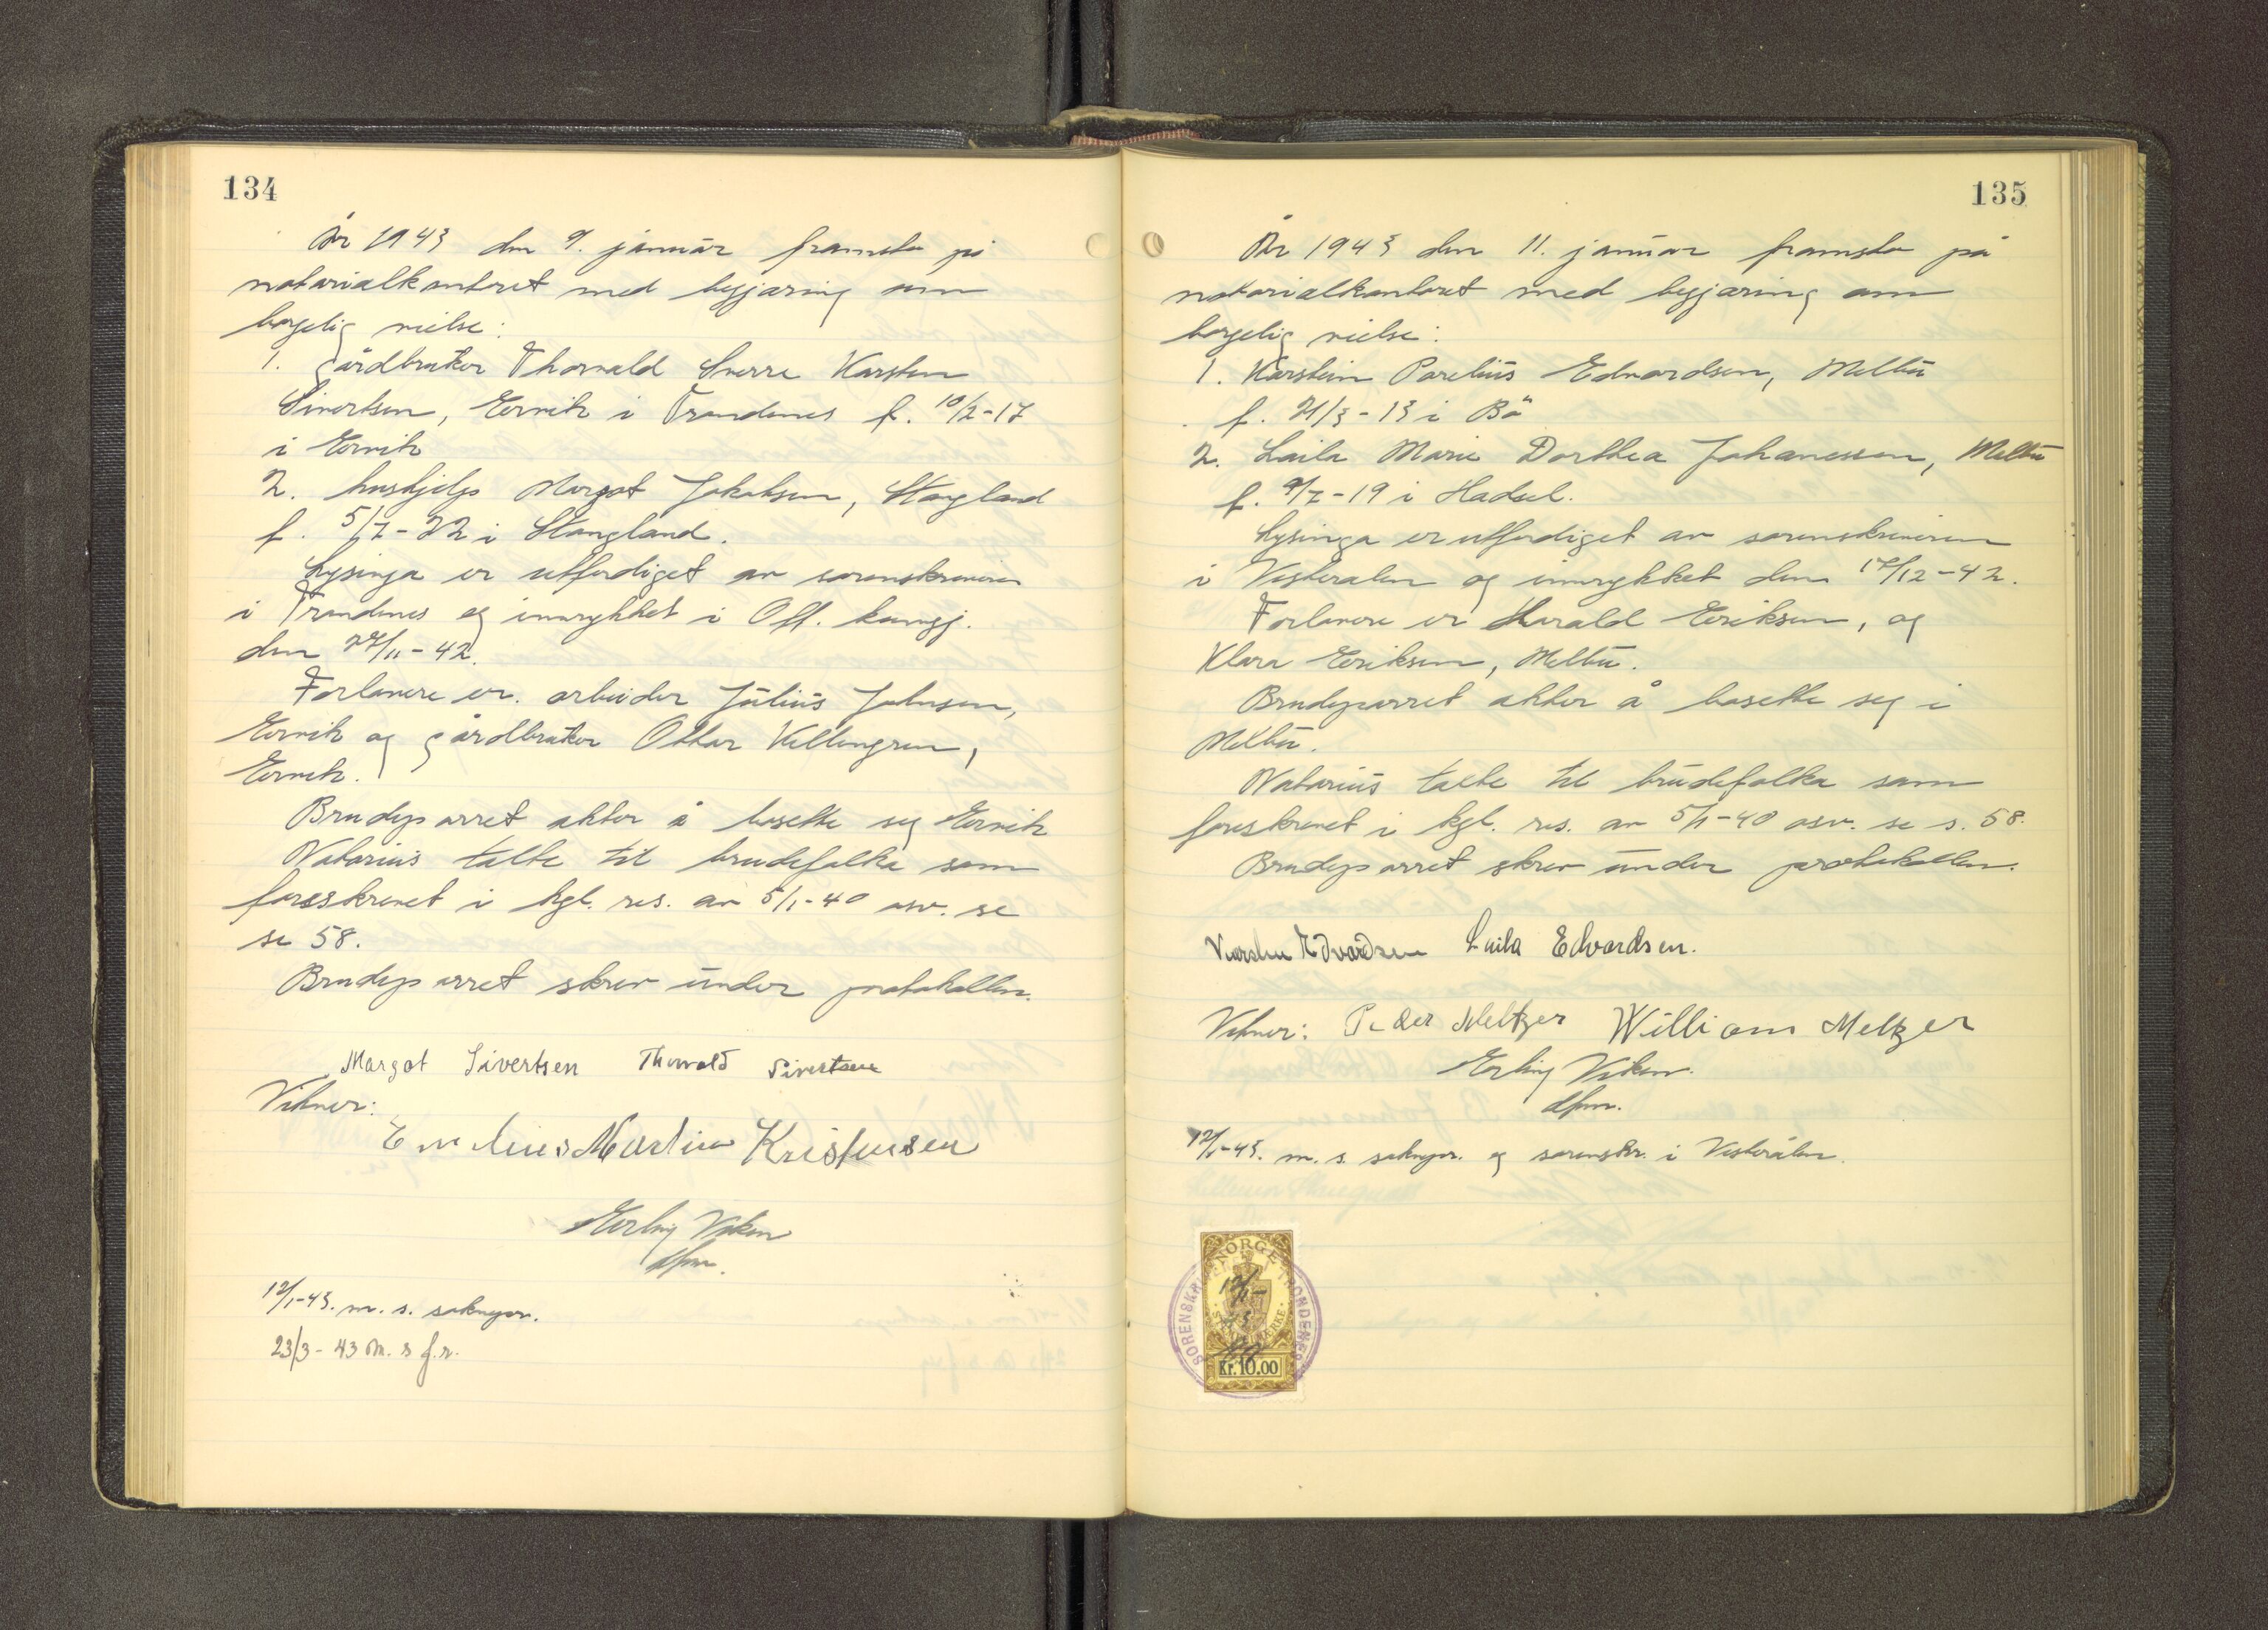 134
År 1943 den 9. januar framsto på
notarialkontoret med begjæring om
borgelig vielse:
1. gårdbruker Thorvald Sverre Karsten
Sivertsen, Ervik i Trondenes f. 10/2-17
i Ervik
2. hushjelp Margot Jakobsen, Stangland
f. 5/7-22 i Stangland.
Lysinga er utferdiget av sorenskriveren
i Trondenes og innrykket i Off. kunngj.
den 27/11-42.
Forlovere er. arbeider Julius Johnsen,
Ervik og gårdbruker Ottar Killengren,
Ervik.
Brudeparret akter å bosette seg Ervik
Notarius talte til brudefolka som
foreskrevet i kgl. res. av 5/1-40 osv. se
se 58.
Brudeparret skrev under protokollen.
Margot Sivertsen Thorvald Sivertsen
Vitner:
Martin Kristensen
Erling Viken
dfm.
12/1-43. m. s. soknepr.
23/3-43 m. s f.r.
135
År 1943 den 11. januar framsto på
notarialkontoret med begjæring om
borgelig vielse:
1. Karstein Parelius Edvardsen, Melbu
f. 21/3-13 i Bö
2. Laila Marie Dorthea Johanessen, Melbu
f. 9/7-19 i Hadsel.
Lysinga er utferdiget av sorenskriveren
i Vesterålen og innrykket den 17/12-42.
Forlovere er Harald Eriksen, og
Klara Eriksen, Melbu.
Brudeparret akter å bosette seg i
Melbu.
Notarius talte til brudefolka som
foreskrevet i kgl. res. av 5/1-40 osv. se s. 58.
Brudeparret skrev under protokollen.
Karsten Edvardsen Laila Edvardsen.
Vitner: Peder Meltzer William Meltzer
Erling Viken.
dfm.
12/1-43. m. s. soknepr. og sorenskr. i Vesterålen.
NORGE
12/1-
43
Kr. 10.00
SORENSKRIVEREN I TRONDENES